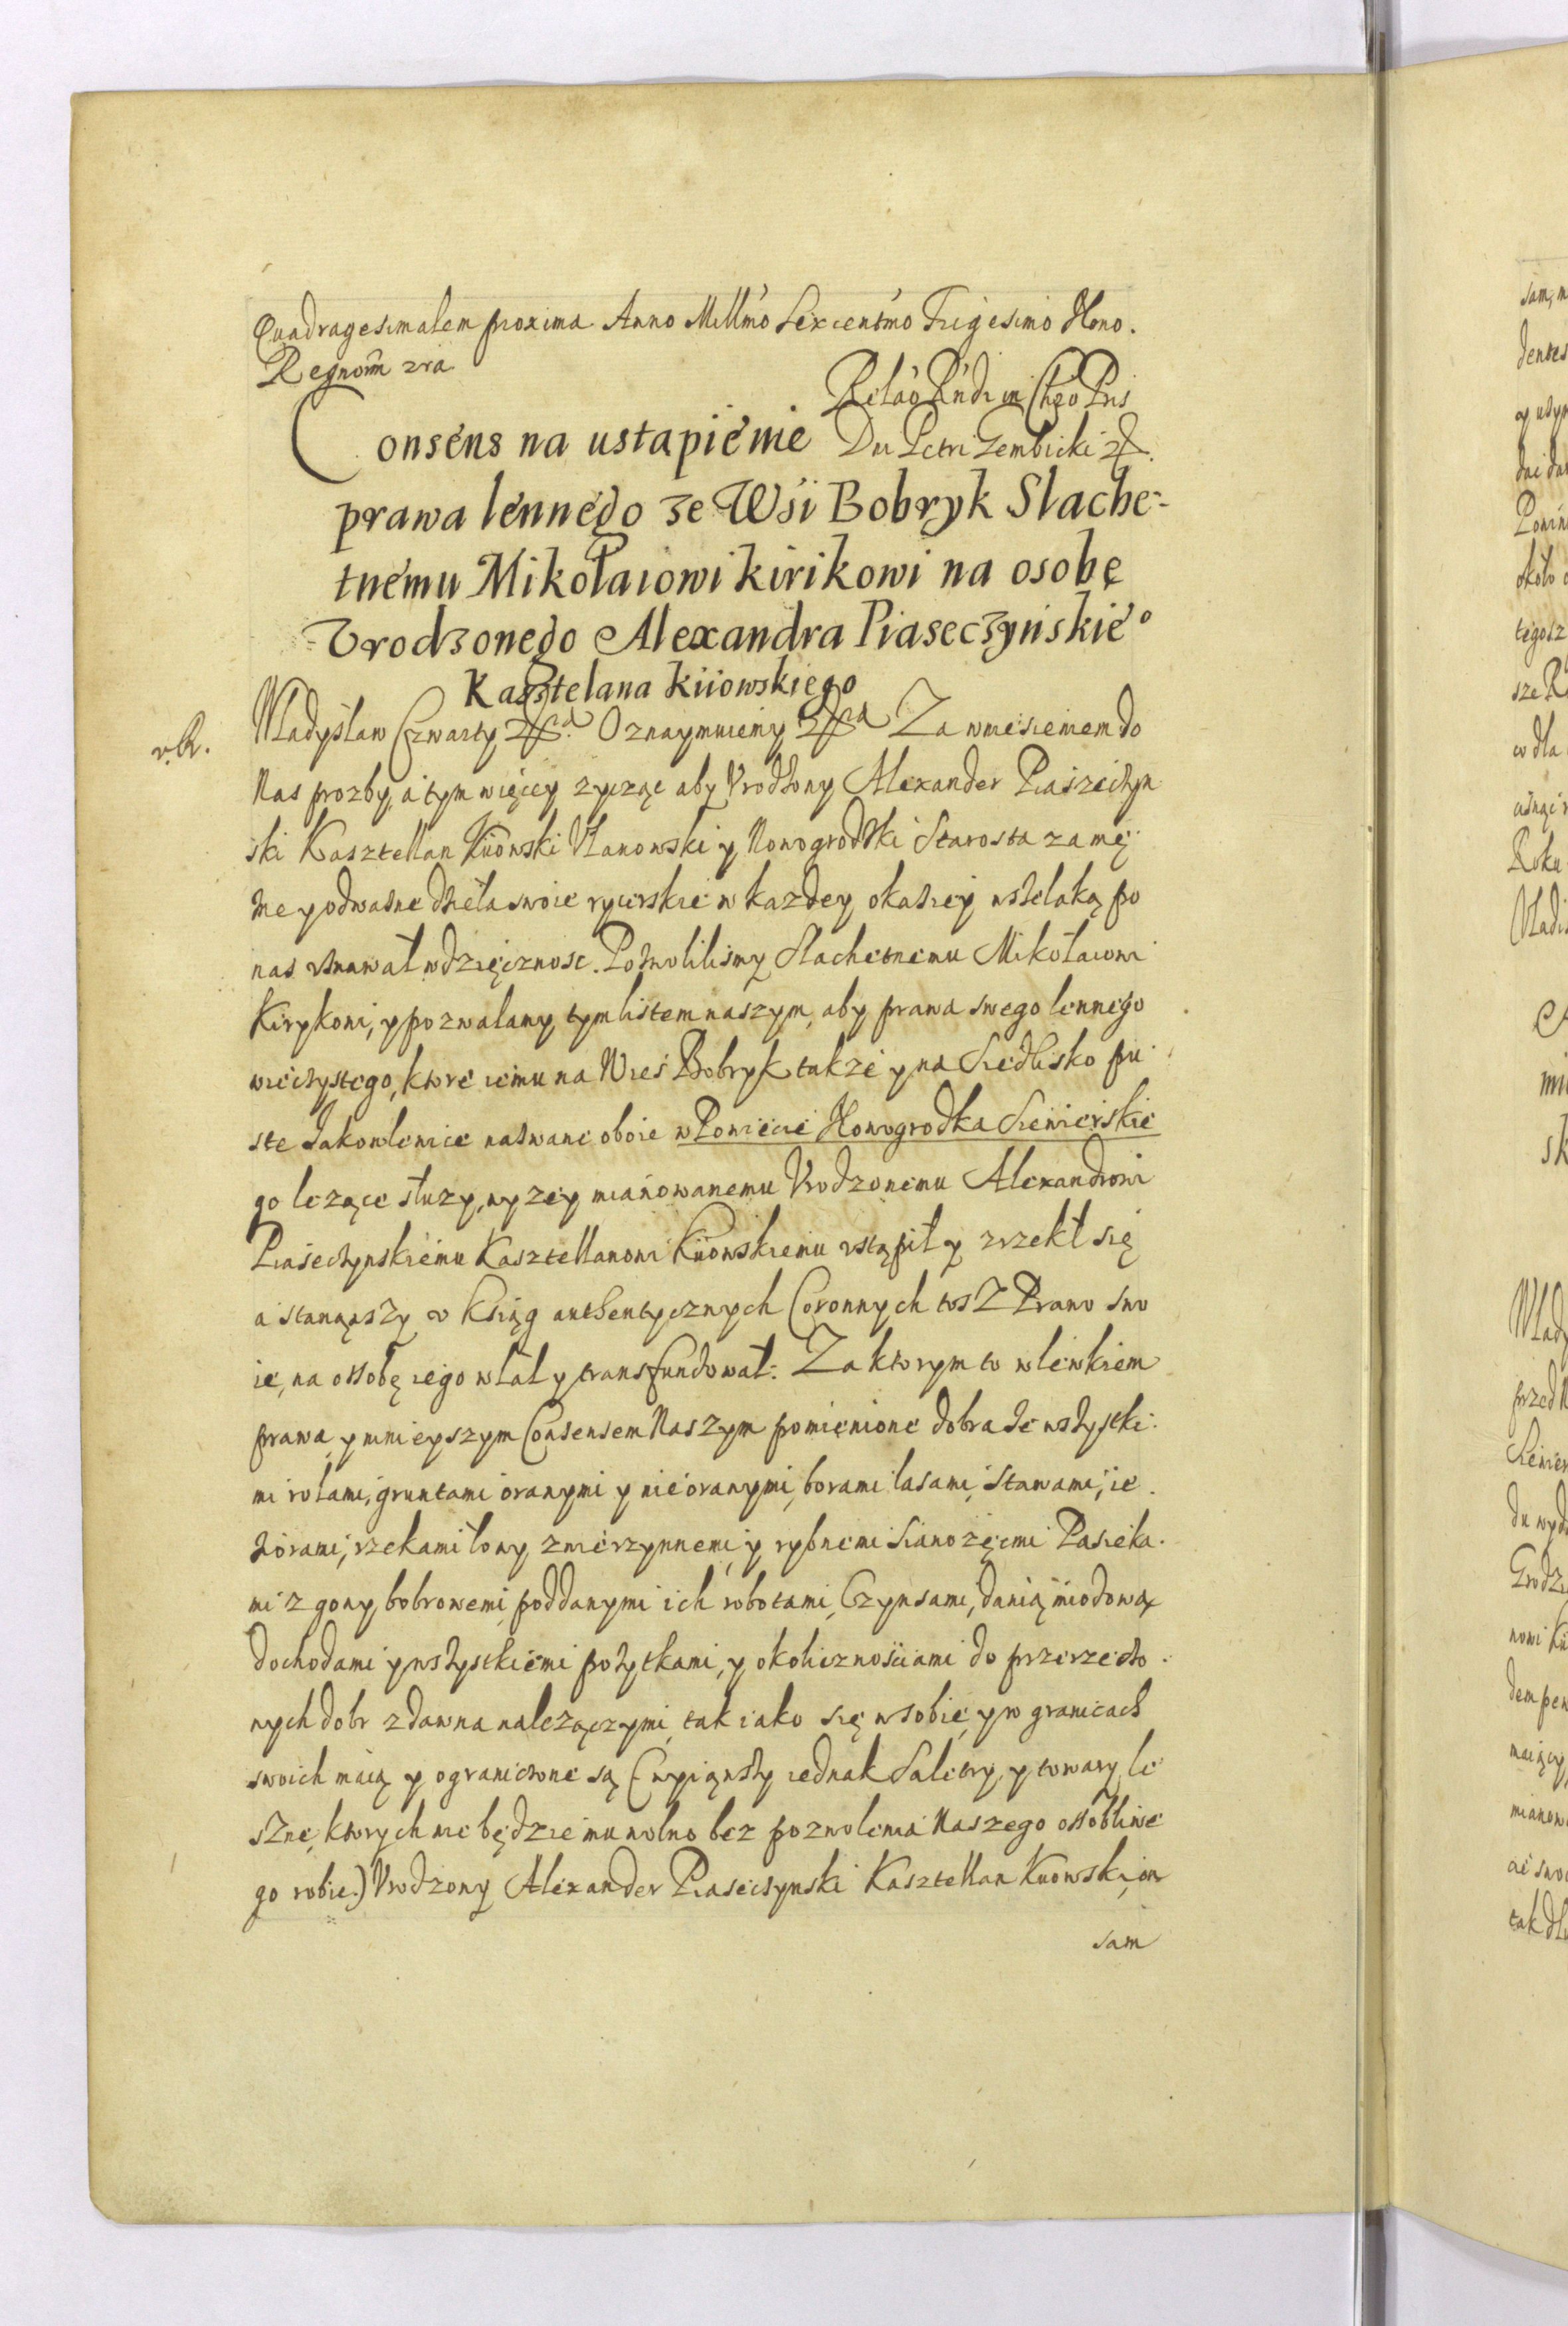 Quadragesimalem proxima Anno Mill'mo Sexcent'mo Trigesimo Nono.
Regnorũ zra
Relão R'ndi in Chro Pris
Consens na ustąpienie Dni Petri Gembicki
prawa lennego ze Wśi Bobryk Slache-
tnemu Mikołaiowi kirikowi na osobę
Vrodzonego Alexandra Piaseczyńskiego
Kasztelana kiiowskiego
v. R.
Władysław Czwarty Oznaymuiemy Za wniesieniem do
Nas prozby, a tym więcey zycząc aby Vrodzony Alexander Piaszeczyn
ski Kasztellan Kiiowski Vlanowski y Nowogrodzki Starosta za mę
zne y odwazne dzieła swoie rycerskie w kazdey okaziey wszelaką po
nas vznawał wdzięcznosc. Pozwolilismy Slachetnemu Mikołaiowi
Kirykowi, y pozwalamy tym listem naszym, aby prawa swego lennego
wieczystego, ktore iemu na Wies Bobryk takze y na Siedlisko pu
ste Jakowlewice nazwane oboie w Powiecie Nowogrodka Siewierskie
go lezące słuzy, wyzey mianowanemu Vrodzonemu Alexandrowi
Piaseczynskiemu Kasztellanowi Kiiowskiemu vstąpił y zrzekł się
a stanąwszy v Ksiąg authentycznych Coronnych tosz Prawo swo
ie, na ossobę iego wlał y transfundował: Za ktorym to wlewkiem
prawa y ninieyszym Consensem Naszym pomienione dobra ze wszystki
mi rolami, gruntami oranymi y nieoranymi, borami lasami, stawami, ie
ziorami, rzekami łowy zwierzynnemi y rybnemi sianozęcmi Pasieka
mi z gony bobrowemi, poddanymi ich robotami, Czynsami, danią miodową
dochodami y wszystkiemi pozytkami, y okolicznościami do przerzeczo
nych dobr z dawna nalezączymi, tak iako się w sobie, y w granicach
swoich maią y ograniczone są (wyiąwszy iednak Saletry, y towary le
szne, ktorych nie będzie mu wolno bez pozwolenia Naszego ossobliwe
go robic.) Vrodzony Alexander Piaseczynski Kasztellan Kiiowski, on
sam